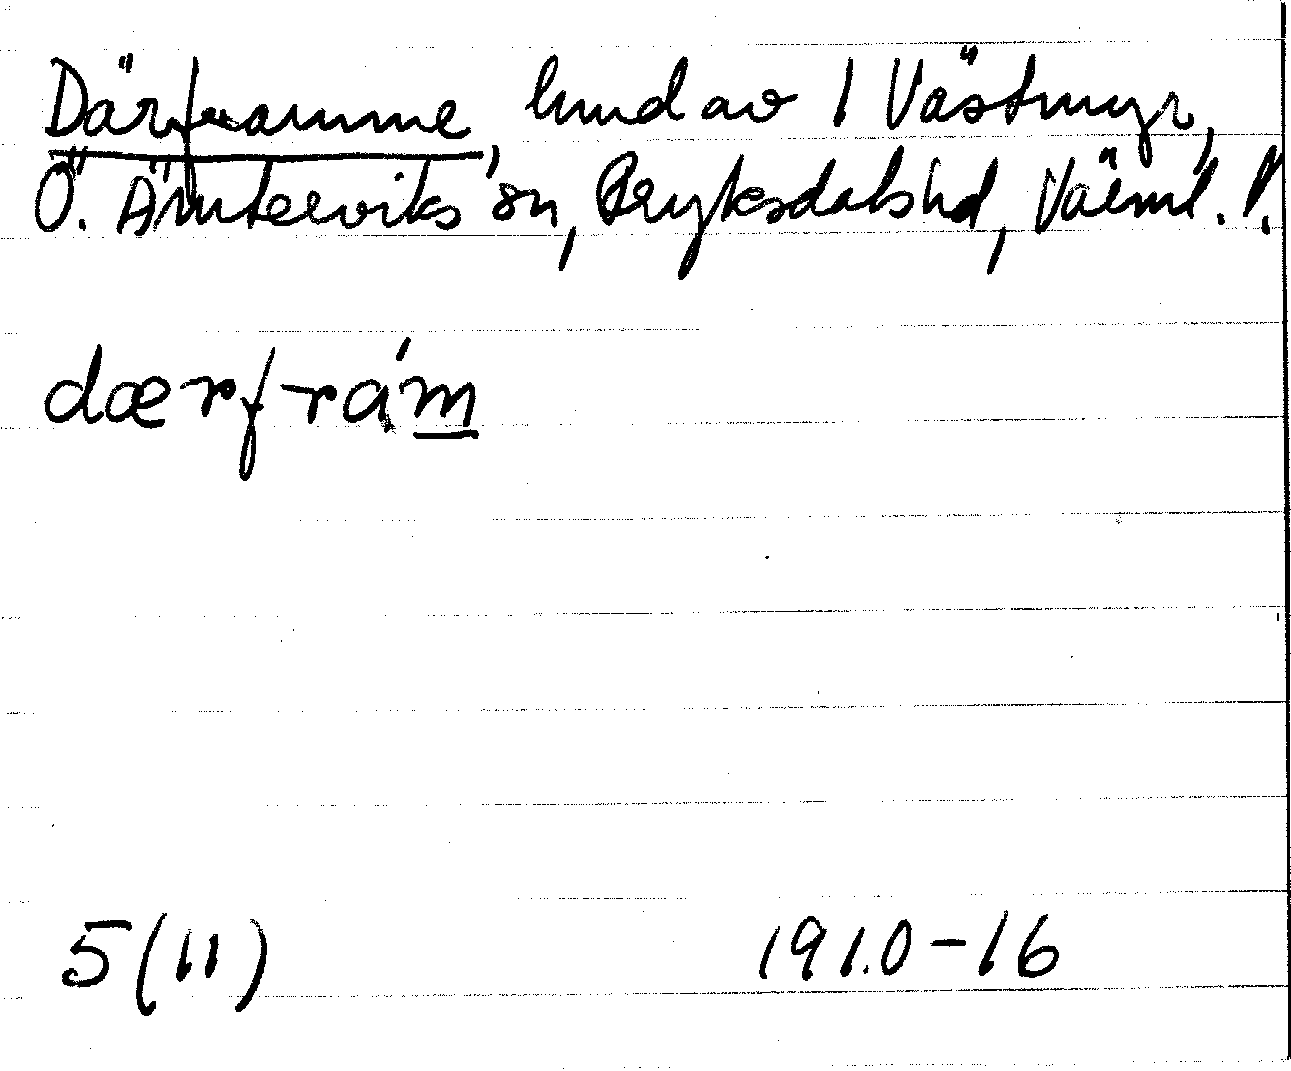 Därframme, lund av 1 Västmyr,
Ö. Ämterviks sn, Fryksdals hd, Värml. l.
dærfrám
5 (11) 1910-16